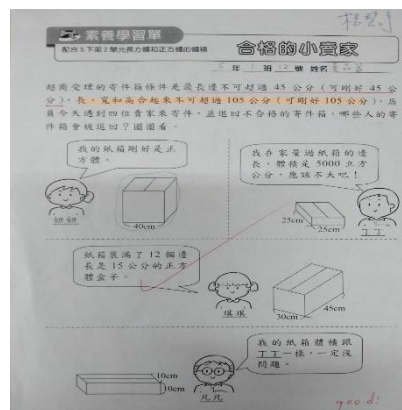 素養學習單
配合5下第2單元長方體和正方體的體積
合格的小賣家
5 年 7 班 12 號 姓名
超商受理的寄件箱條件是最長邊不可超過 45 公分（可剛好 45 公
分），長、寬和高合起來不可超過 105 公分（可剛好 105 公分）。店
員今天遇到四位賣家來寄件，並退回不合格的寄件箱，哪些人的寄
件箱會被退回？圈圈看。
我的紙箱剛好是正
方體。
40cm
我在家量過紙箱的邊
長，體積是 5000 立方
公分，應該不大吧！
25cm
25cm
丁丁
紙箱裝滿了 12 個邊
長是 15 公分的正方
體盒子。
琪琪
30cm
45cm
我的紙箱體積跟
丁丁一樣，一定沒
問題。
10cm
10cm
凡凡
good!